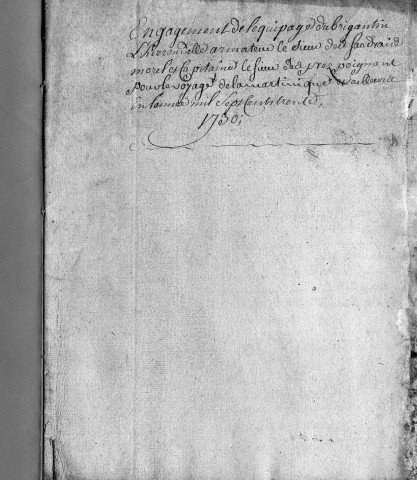 Engagement de lequipage du brigantin
L'hirondelle armateur le sieur des
morel et Capitaine le sieur des prez poignant
pour le voyage de la martinique et
en lannee mil Sept cents trente,
1730;